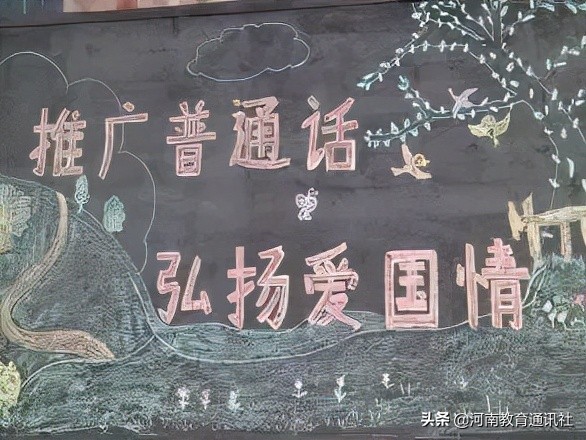 推广普通话
弘扬爱国情
头条 @河南教育通讯社